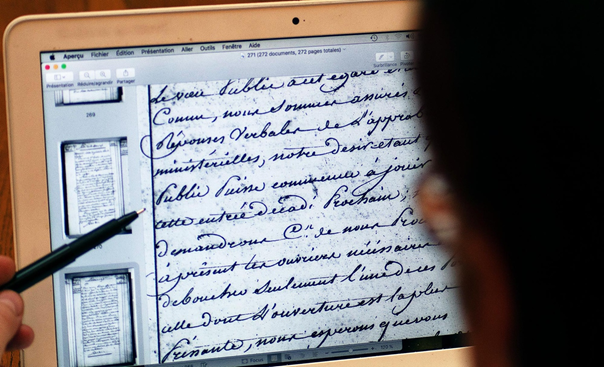 Aperçu Fichier Édition Présentation Aller Outils Fenêtre Aide
271 (272 documents, 272 pages totales)
Présentation Réduire/agrandir Partager Surveillance
269
Le vœu Public a cet égard
Comme, nous sommes assurés
Réponses Verbales de L'approb
ministérielles, notre desir étant q
Public Puisse commencer à jouir
cette entrée décadi Prochain,
demandrons C.en de nous Pro
à présent les ouvriers nécessaires
déboucher Seulement l'une de ces P
celle dont L'ouverture est la plus
Pressante, nous esperons que vous
Focus